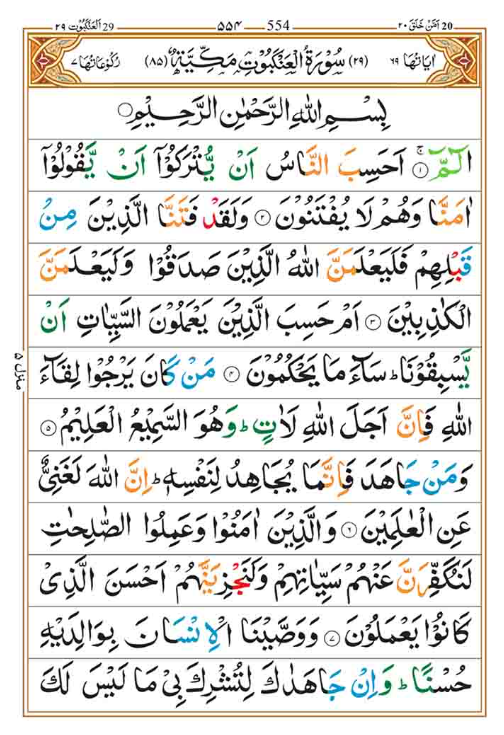 20 اَمَّنْ خَلَقَ ٢٠ ــــ 554 ــــ ٥٥٤ ــــ 29 اَلْعَنْكَبُوْت ٢٩
اٰيَاتُهَا ٦٩ (٢٩) سُوْرَةُ الْعَنْكَبُوْتِ مَكِّيَّةٌ (٨٥) رُكُوْعَاتُهَا ٧
بِسْمِ اللّٰهِ الرَّحْمٰنِ الرَّحِيْمِ
الٓمّٓ ۚ ١ اَحَسِبَ النَّاسُ اَنْ يُّتْرَكُوْٓا اَنْ يَّقُوْلُوْٓا
اٰمَنَّا وَهُمْ لَا يُفْتَنُوْنَ ٢ وَلَقَدْ فَتَنَّا الَّذِيْنَ مِنْ
قَبْلِهِمْ فَلَيَعْلَمَنَّ اللّٰهُ الَّذِيْنَ صَدَقُوْا وَلَيَعْلَمَنَّ
الْكٰذِبِيْنَ ٣ اَمْ حَسِبَ الَّذِيْنَ يَعْمَلُوْنَ السَّيِّاٰتِ اَنْ
يَّسْبِقُوْنَا ؕ سَآءَ مَا يَحْكُمُوْنَ ٤ مَنْ كَانَ يَرْجُوْا لِقَآءَ
اللّٰهِ فَاِنَّ اَجَلَ اللّٰهِ لَاٰتٍ ؕ وَهُوَ السَّمِيْعُ الْعَلِيْمُ ٥
وَمَنْ جَاهَدَ فَاِنَّمَا يُجَاهِدُ لِنَفْسِهٖ ؕ اِنَّ اللّٰهَ لَغَنِيٌّ
عَنِ الْعٰلَمِيْنَ ٦ وَالَّذِيْنَ اٰمَنُوْا وَعَمِلُوا الصّٰلِحٰتِ
لَنُكَفِّرَنَّ عَنْهُمْ سَيِّاٰتِهِمْ وَلَنَجْزِيَنَّهُمْ اَحْسَنَ الَّذِيْ
كَانُوْا يَعْمَلُوْنَ ٧ وَوَصَّيْنَا الْاِنْسَانَ بِوَالِدَيْهِ
حُسْنًا ؕ وَاِنْ جَاهَدٰكَ لِتُشْرِكَ بِيْ مَا لَيْسَ لَكَ
منزل ٥